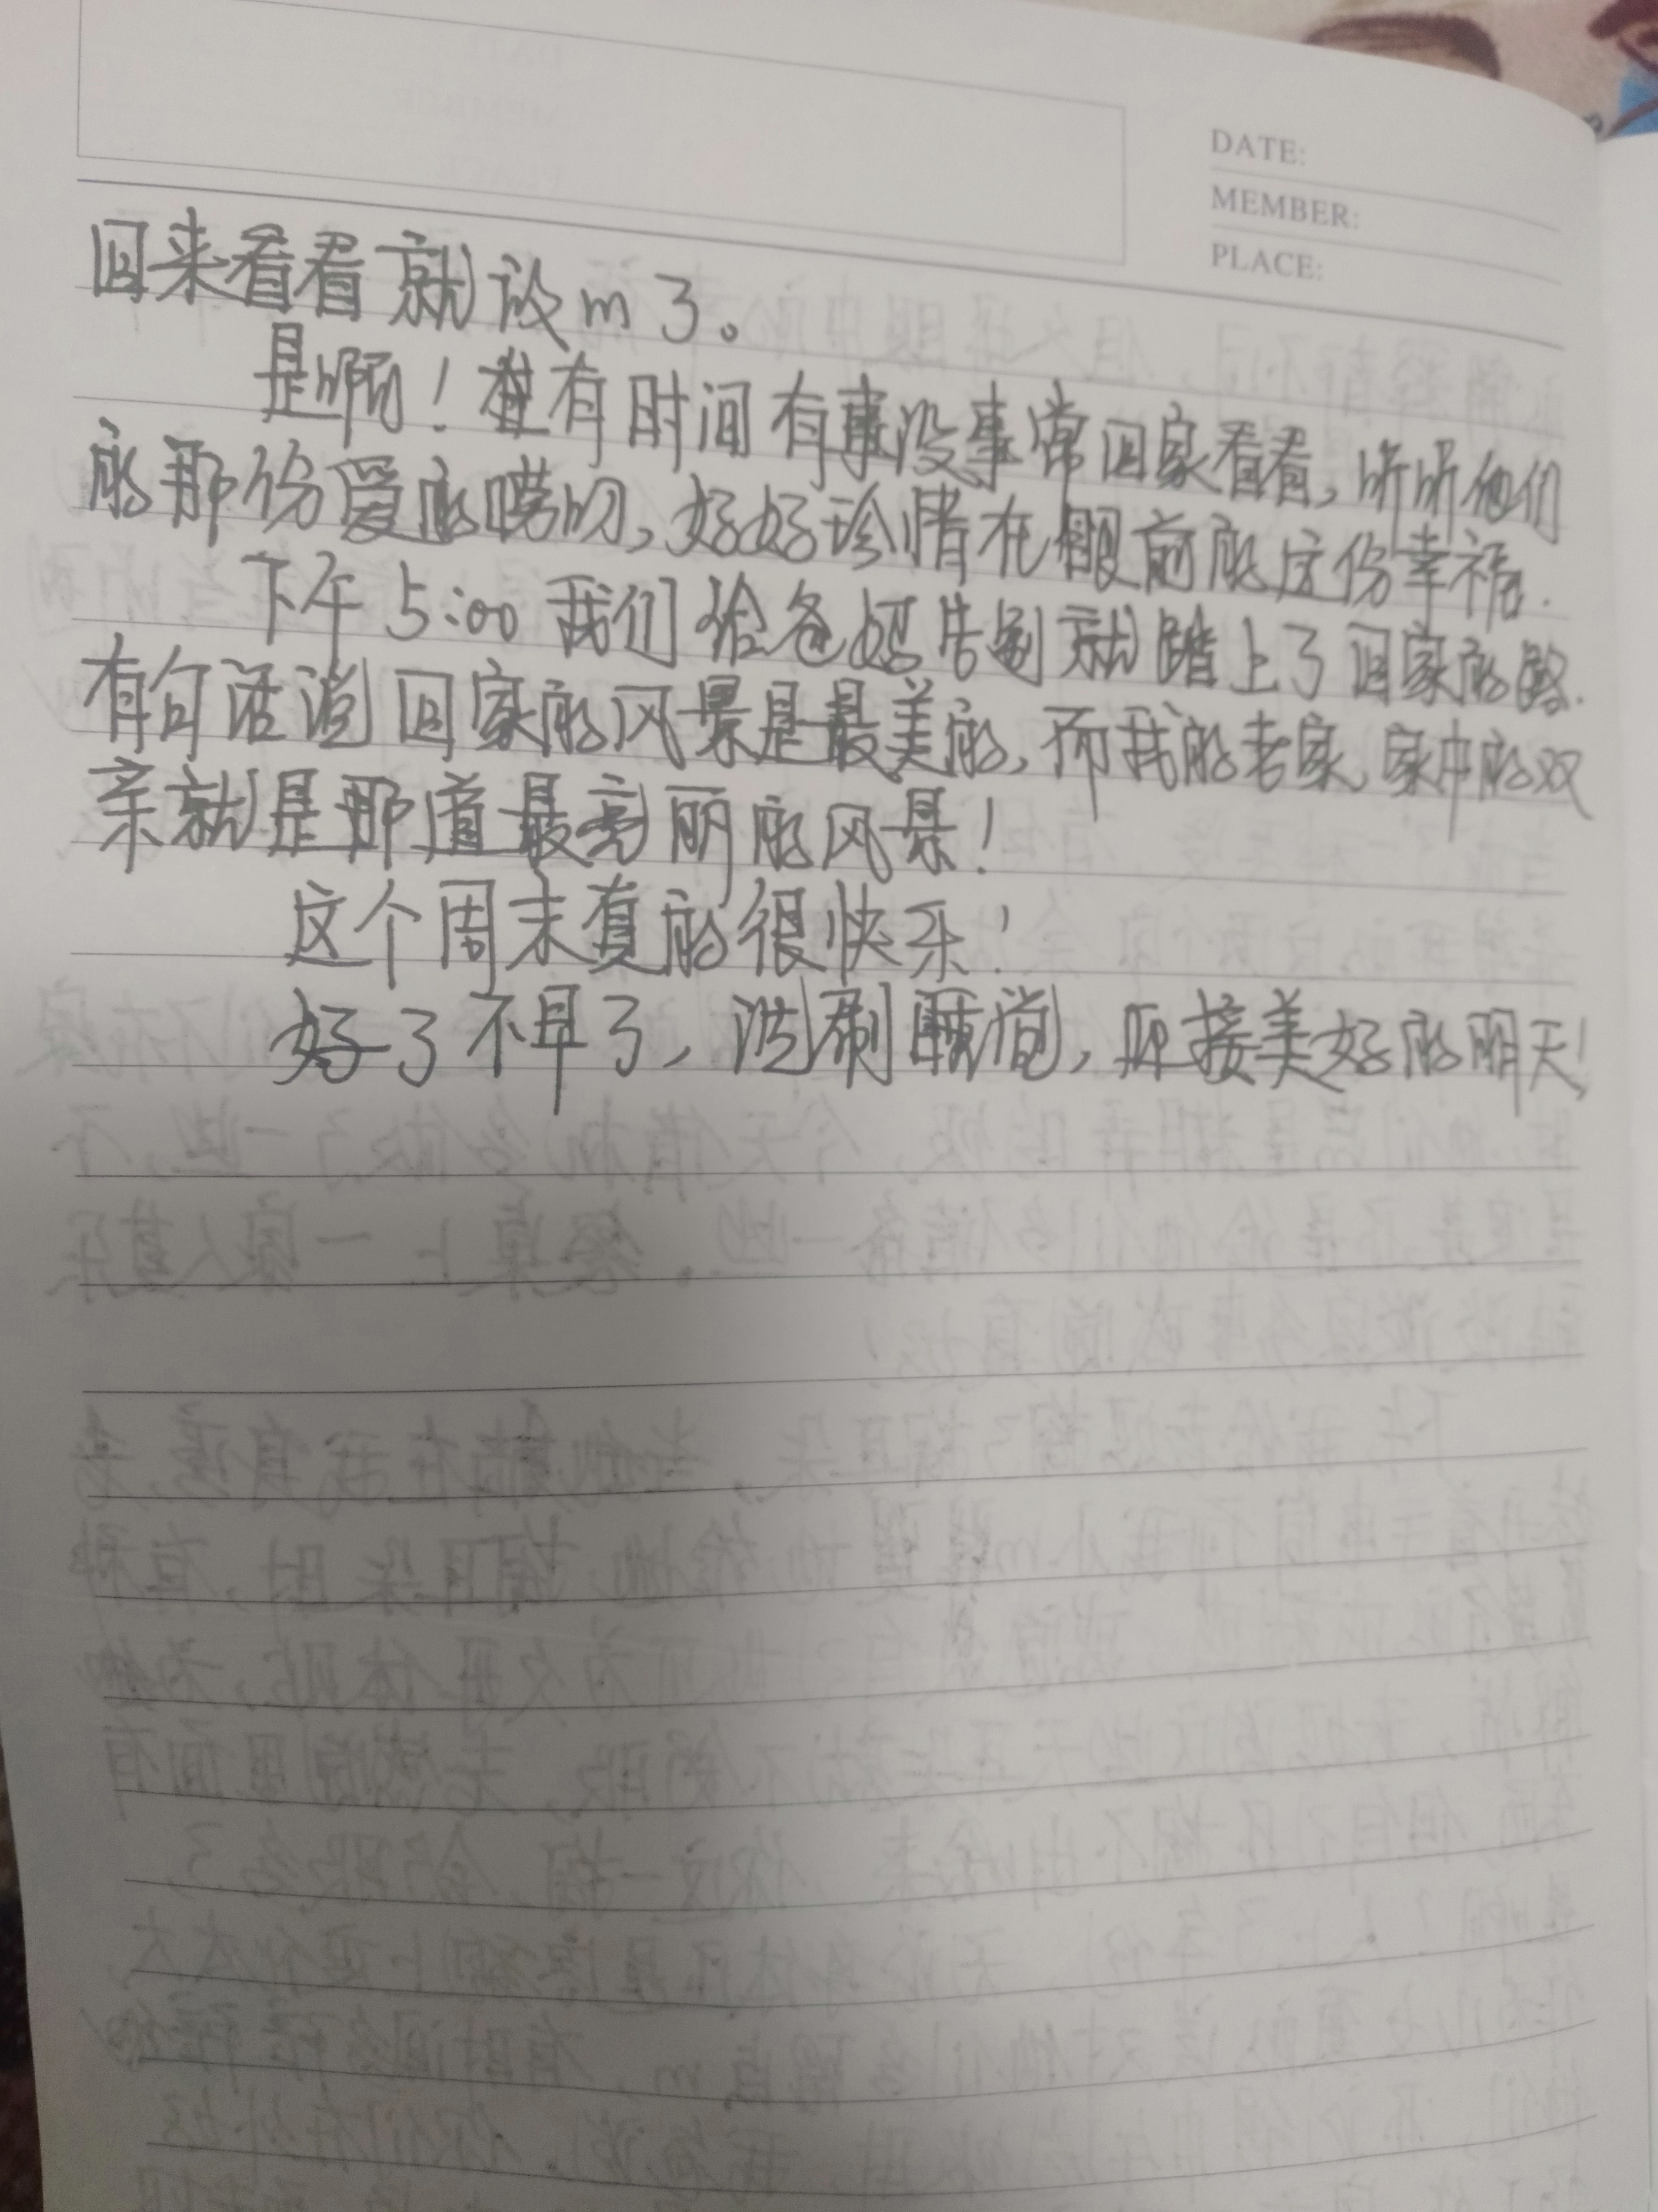 DATE:
MEMBER:
PLACE:
回来看看就放m了。
是啊！在有时间有事没事常回家看看，听听他们
的那份爱的唠叨，好好珍惜在眼前的这份幸福.
下午5:00我们给爸妈告别就踏上了回家的路.
有句话说回家的风景是最美的，而我的老家、家中的双
亲就是那道最亮丽的风景！
这个周末真的很快乐！
好了不早了，洗刷睡觉，迎接美好的明天！